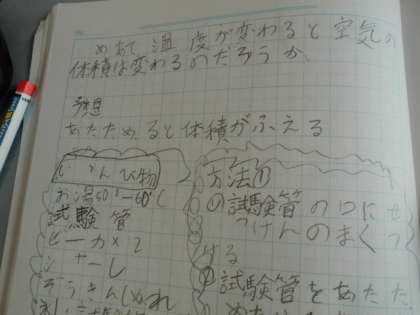 めあて 温度が変わると空気の
体積は変わるのだろうか
予想
あたためると体積がふえる
じゅんび物
お湯50°-60°C
試験管
ビーカ×2
シャーし
ぞうきんぬれ
方法①
①試験管の口にせ
っけんのまくつ
ける
試験管をあたた